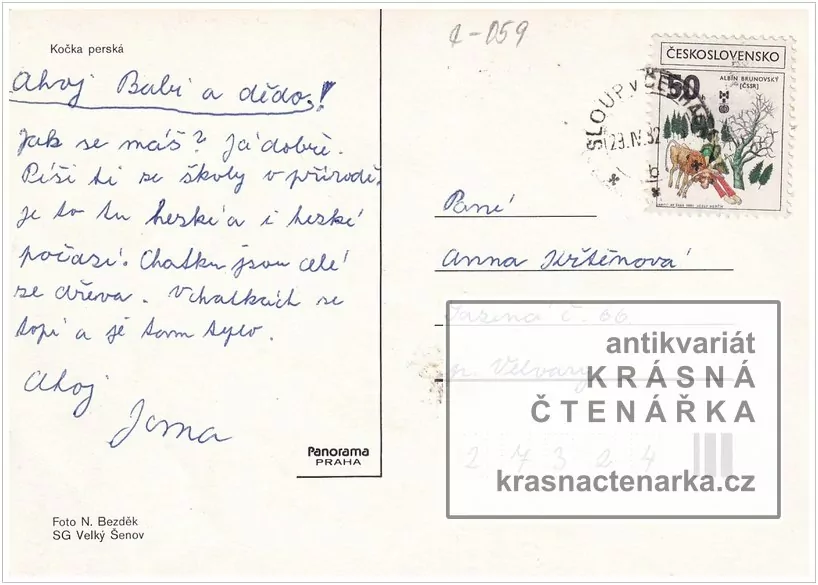 Kočka perská
Ahoj Babi a dědo!
Jak se máš? Já dobře.
Píši ti ze školy v přírodě,
je to tu hezké a i hezké
počasí. Chatky jsou celé
ze dřeva. V chatkách se
topí a je tam teplo.
Ahoj
Jana
Panorama
PRAHA
Foto N. Bezděk
SG Velký Šenov
059
ČESKOSLOVENSKO
50
ALBÍN BRUNOVSKÝ
(ČSSR)
SLOUP V
23.IV.82
b
Paní
Anna Křtěnová
č. 66
p. Velvary
2 7 3 2 4
antikvariát
KRÁSNÁ
ČTENÁŘKA
krasnactenarka.cz